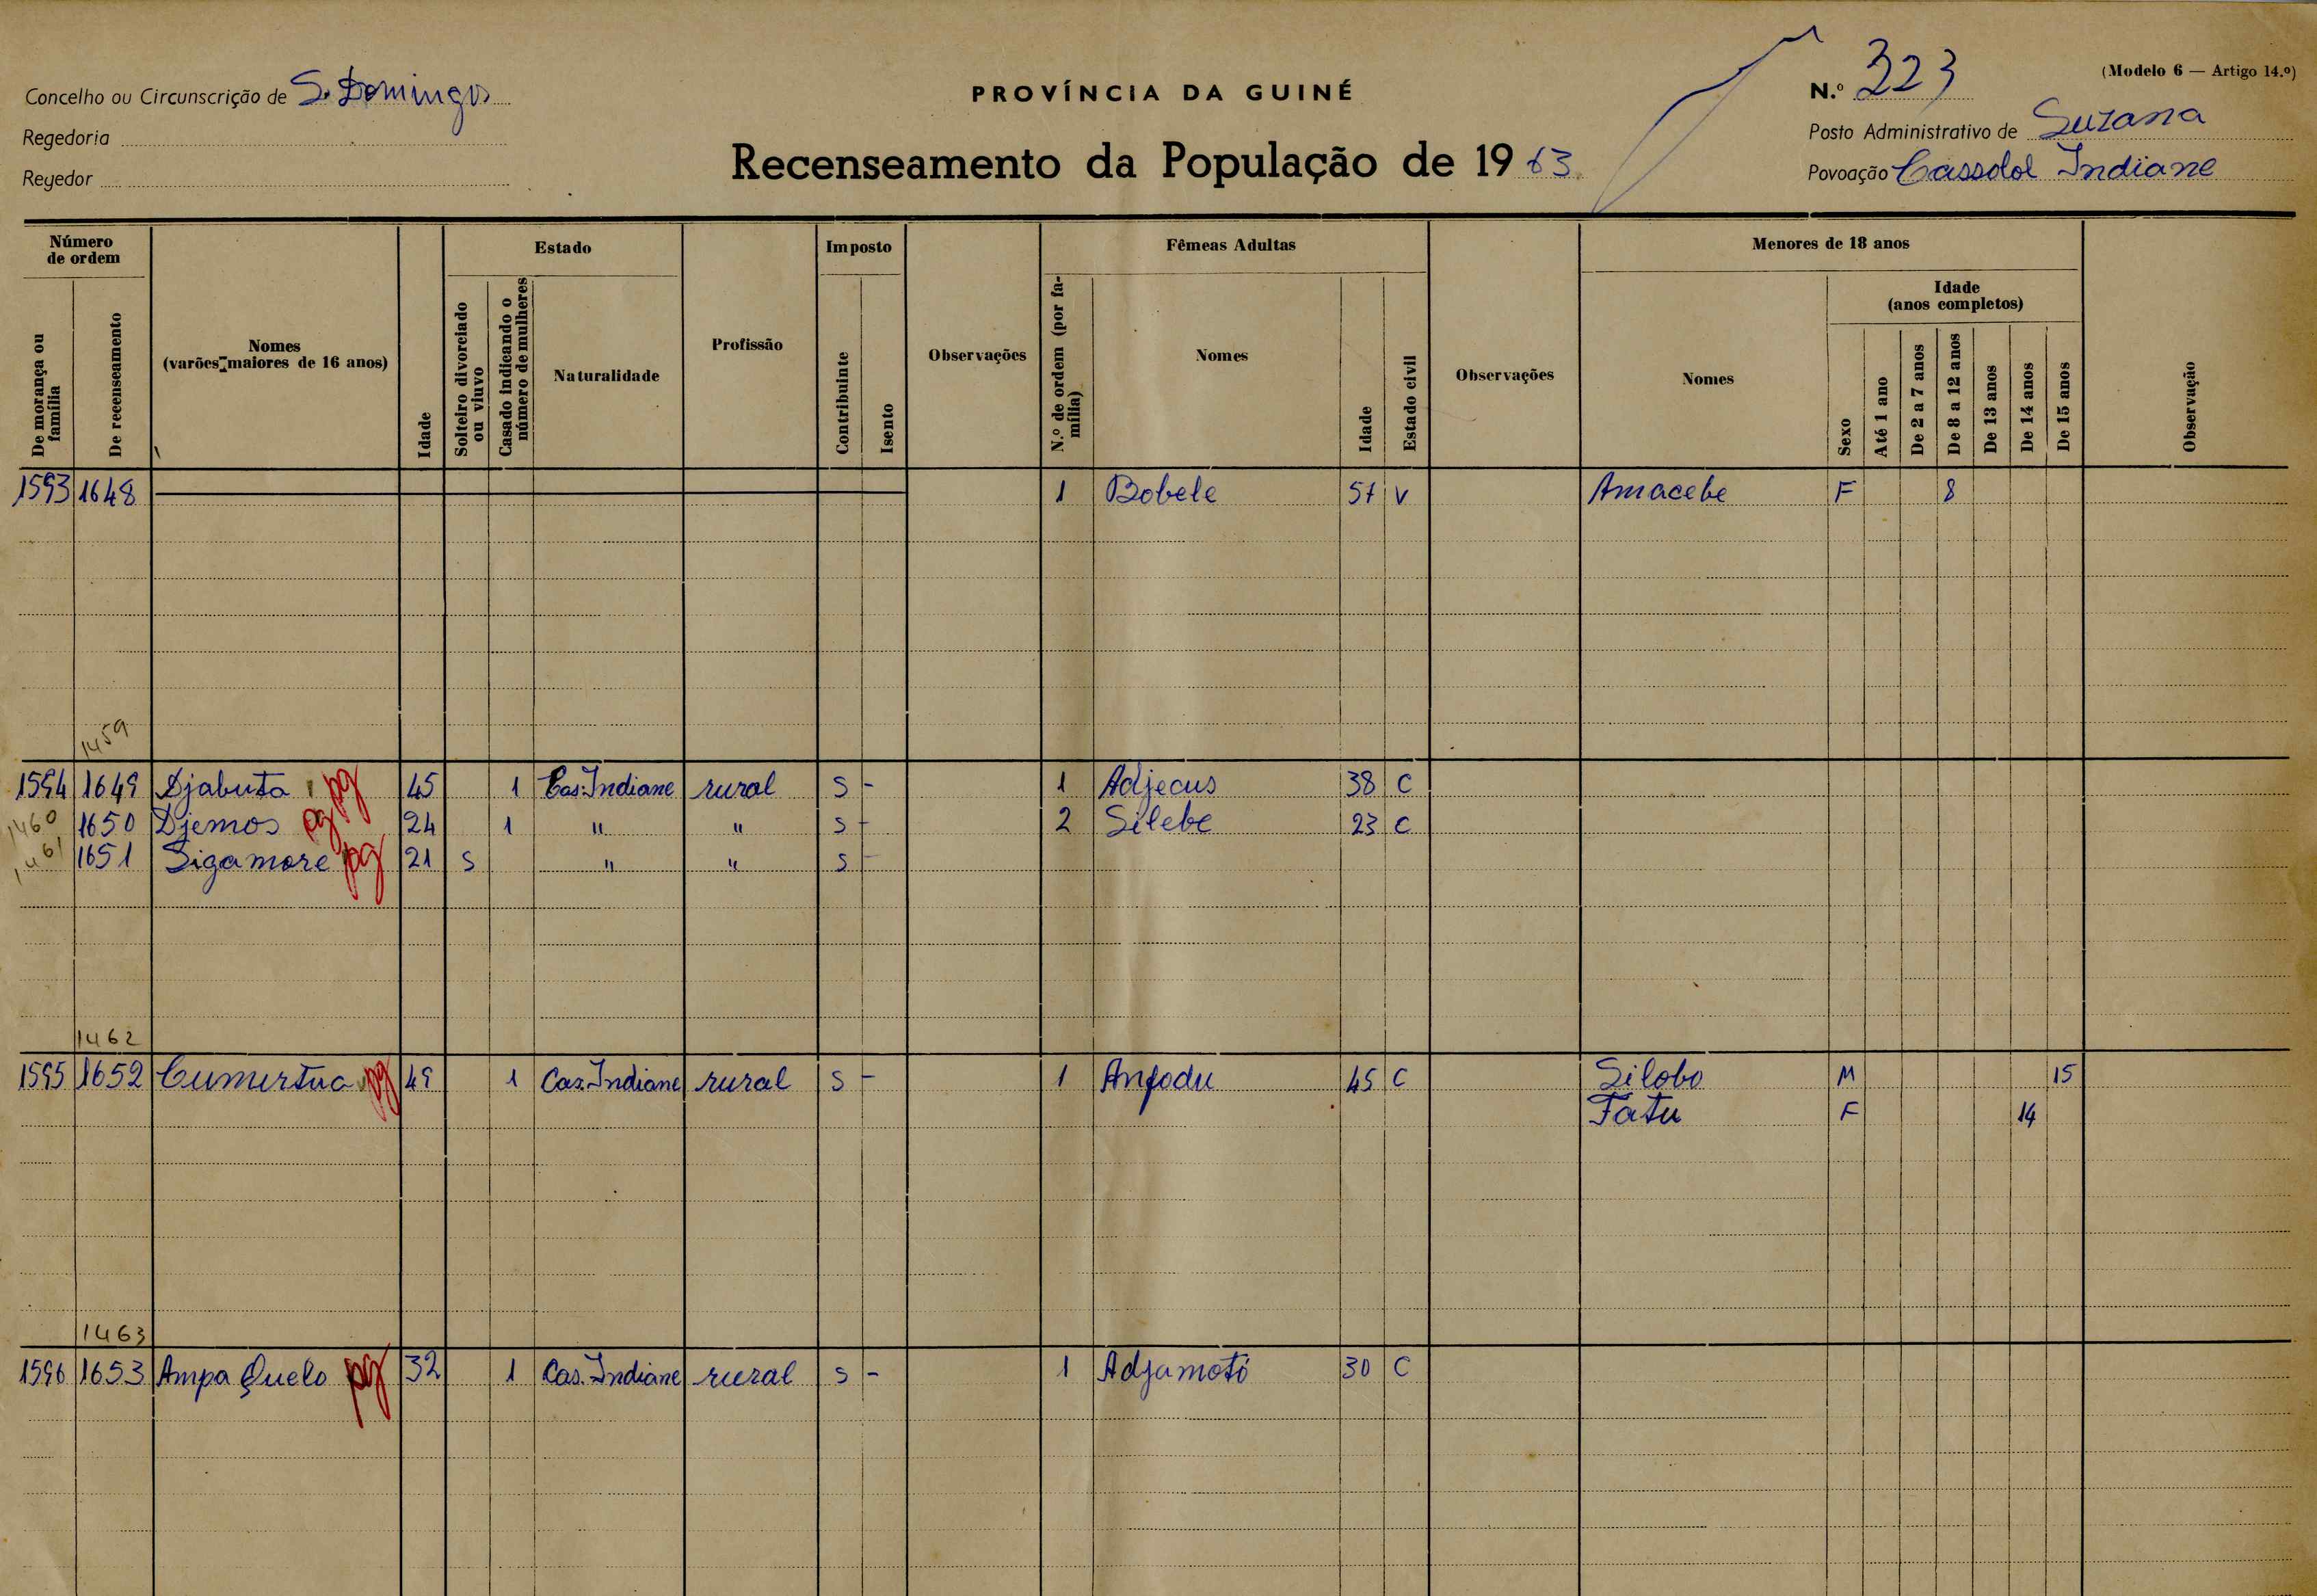 Concelho ou Circunscrição de S. Domingos
Regedoria
Regedor
PROVÍNCIA DA GUINÉ
Recenseamento da População de 1963
(Modelo 6 — Artigo 14.º)
N.º 323
Posto Administrativo de Suzana
Povoação Cassolol Indiane
Número de ordem
De morança ou família
De recenseamento
Nomes (varões maiores de 16 anos)
Idade
Estado
Solteiro divorciado ou viuvo
Casado indicando o número de mulheres
Naturalidade
Profissão
Imposto
Contribuinte
Isento
Observações
Fêmeas Adultas
N.º de ordem (por família)
Nomes
Idade
Estado civil
Observações
Menores de 18 anos
Nomes
Sexo
Idade (anos completos)
Até 1 ano
De 2 a 7 anos
De 8 a 12 anos
De 13 anos
De 14 anos
De 15 anos
Observação
1593 1648 1 Bobele 57 V Amacebe F 8
1459
1594 1649 Djabuta pg 45 1 Cas. Indiane rural S - 1 Adjecus 38 C
1460 1650 Djemos pg 24 1 " " S - 2 Silebe 23 C
1461 1651 Sigamore pg 21 S " " S -
1462
1595 1652 Cumertua pg 49 1 Cas. Indiane rural S - 1 Anfodu 45 C Silobo M 15
Fatu F 14
1463
1596 1653 Ampa Quelo pg 32 1 Cas. Indiane rural S - 1 Adjamoti 30 C